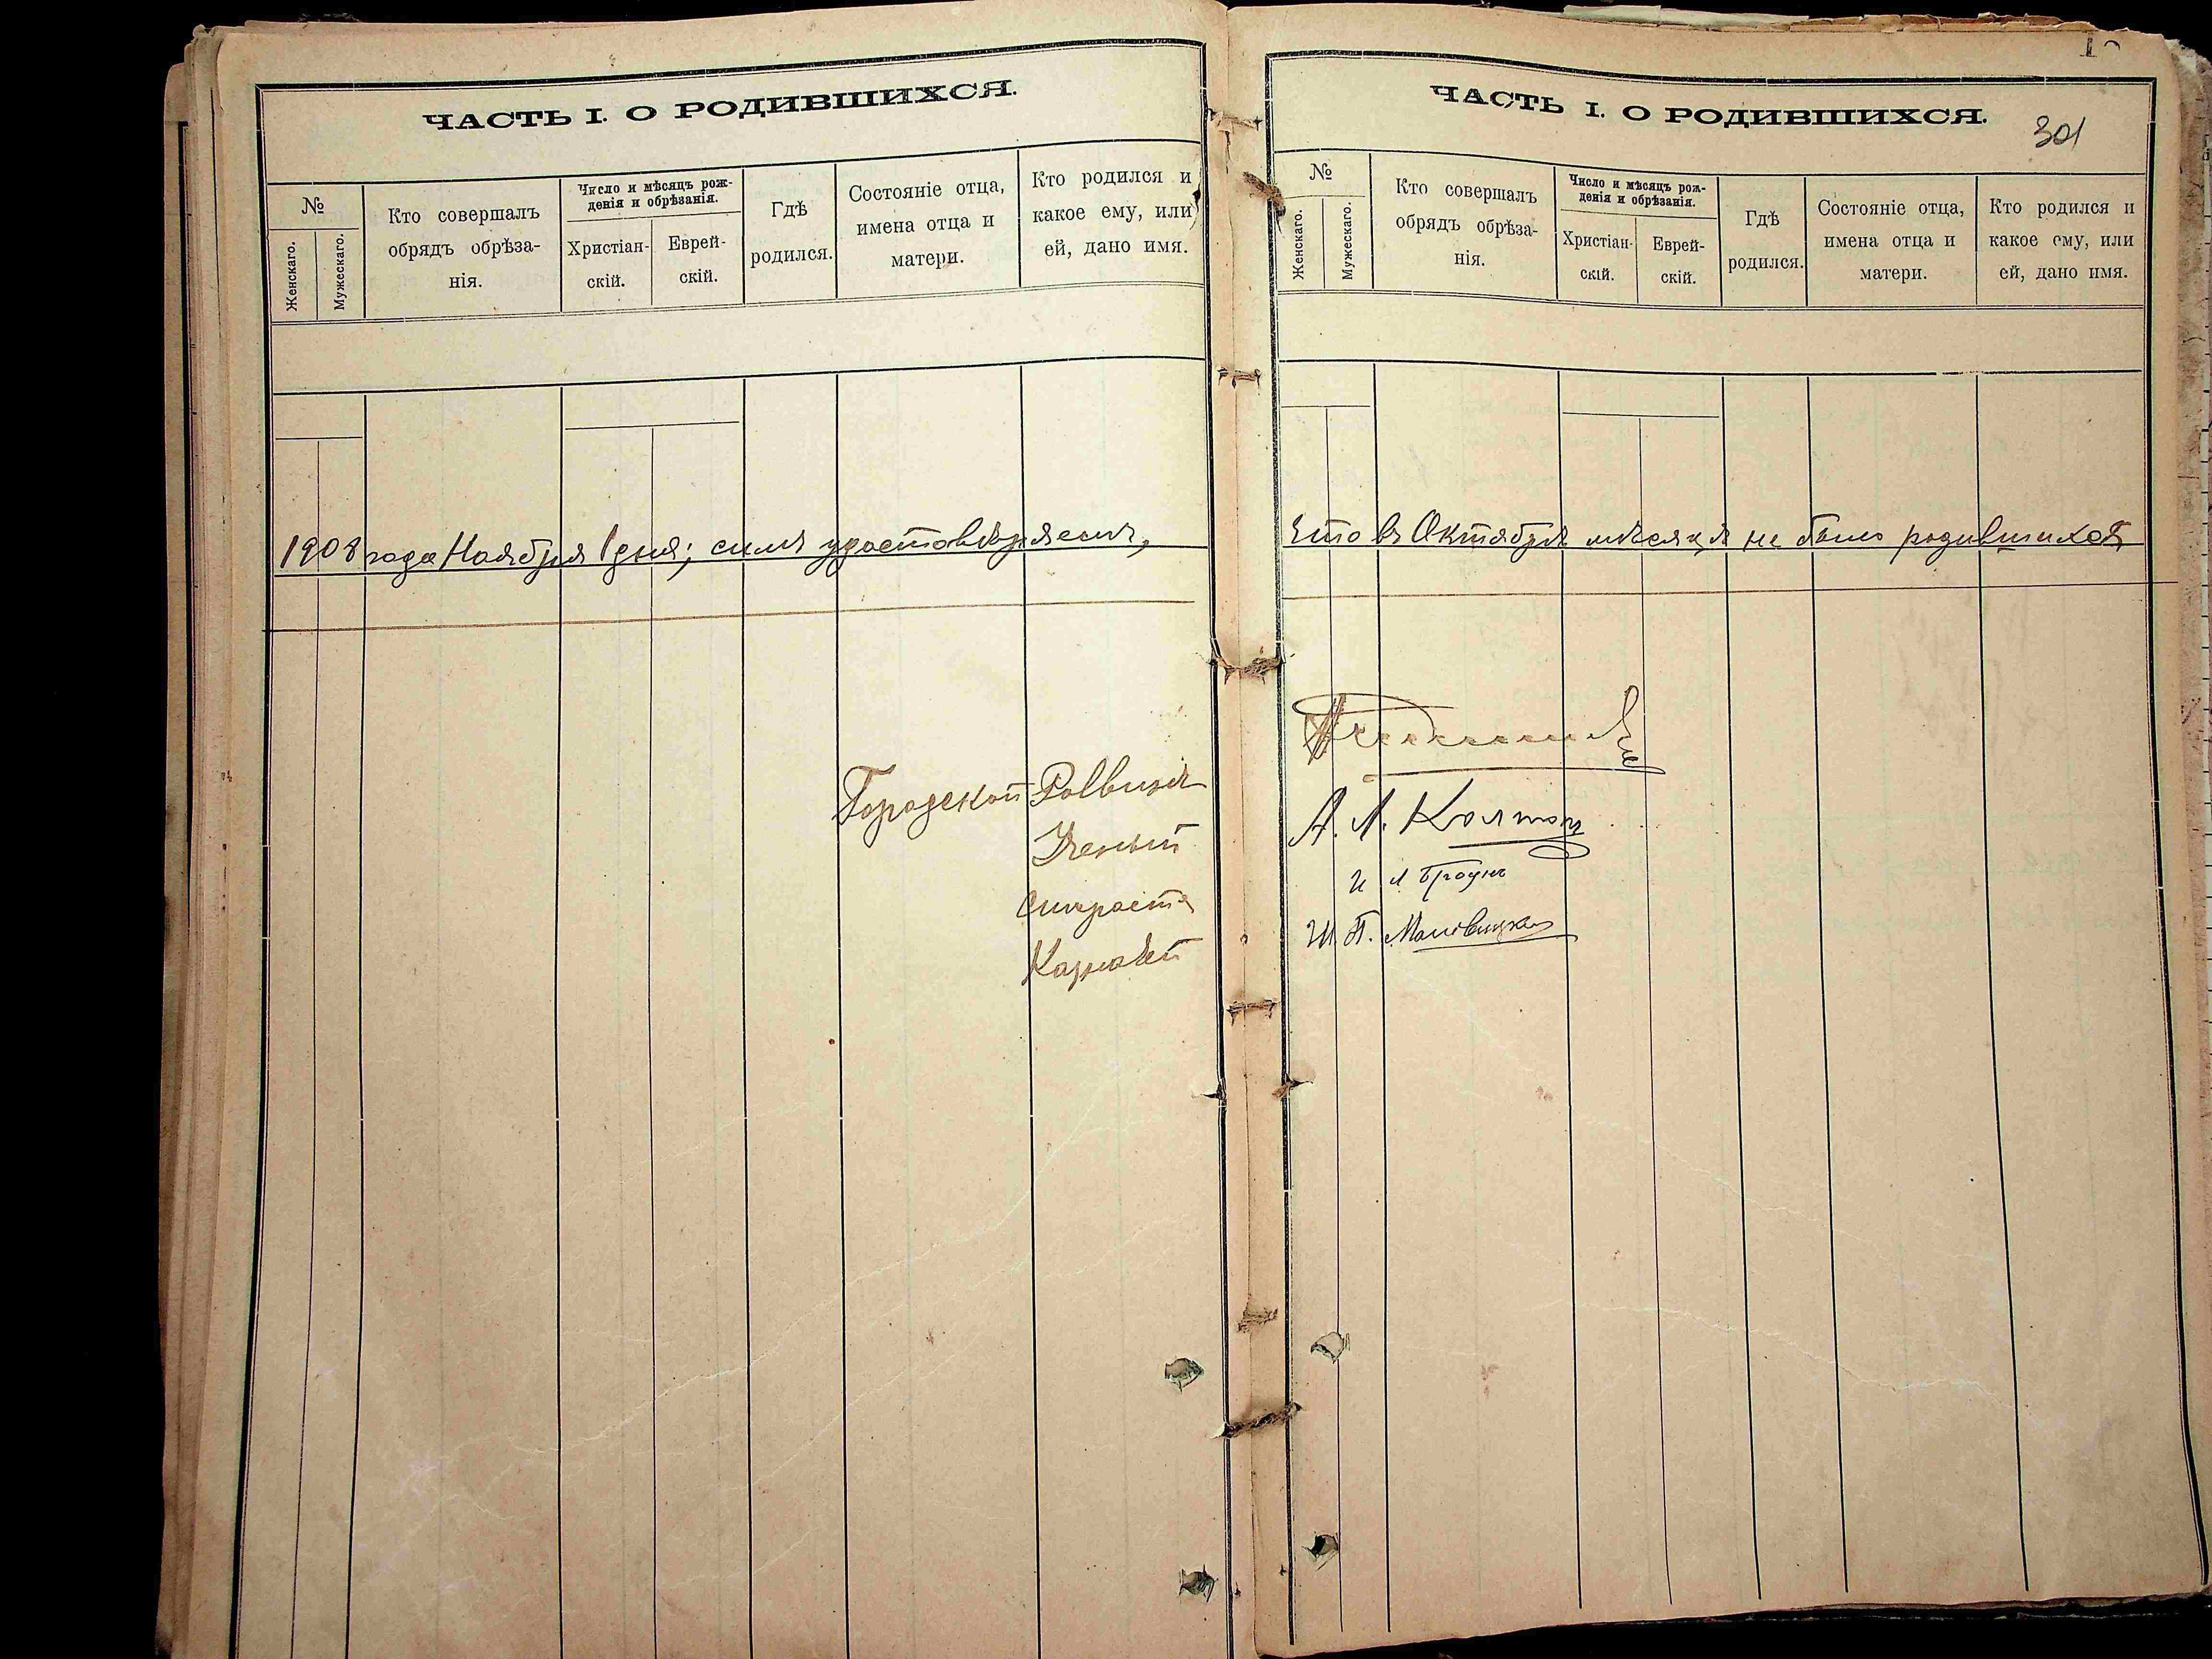 ЧАСТЬ I. О РОДИВШИХСЯ.
№
Женскаго.
Мужескаго.
Кто совершалъ
обрядъ обрѣза-
нія.
Число и мѣсяцъ рож-
денія и обрѣзанія.
Христіан-
скій.
Еврей-
скій.
Гдѣ
родился.
Состояніе отца,
имена отца и
матери.
Кто родился и
какое ему, или
ей, дано имя.
1908 года Ноября 1 дня; симъ удостовѣряемъ,
Городской Раввинъ
Ученый
Староста
Казначей
ЧАСТЬ I. О РОДИВШИХСЯ.
301
№
Женскаго.
Мужескаго.
Кто совершалъ
обрядъ обрѣза-
нія.
Число и мѣсяцъ рож-
денія и обрѣзанія.
Христіан-
скій.
Еврей-
скій.
Гдѣ
родился.
Состояніе отца,
имена отца и
матери.
Кто родился и
какое ему, или
ей, дано имя.
что въ Октябрѣ мѣсяцѣ не было родившихся
А. Л. Колтон
И Л Броунъ
Ш. П.